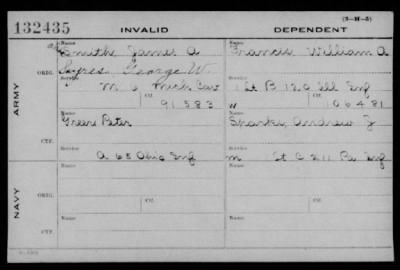 132435 INVALID DEPENDENT
(3-H-5)
Name Name
Smith James A Francis William A
ORIG. Sayres, George W.
Service Service
M 6 Mich Cav 1st B 120 Ill Inf
Ctf. Ctf.
91583 " 106481
ARMY
Name Name
Greer Peter Sparks, Andrew J
CTF.
Service Service
A 65 Ohio Inf m 1st C 211 Pa Inf
Name Ctf. Name Ctf.
ORIG.
NAVY
Name Name
CTF.